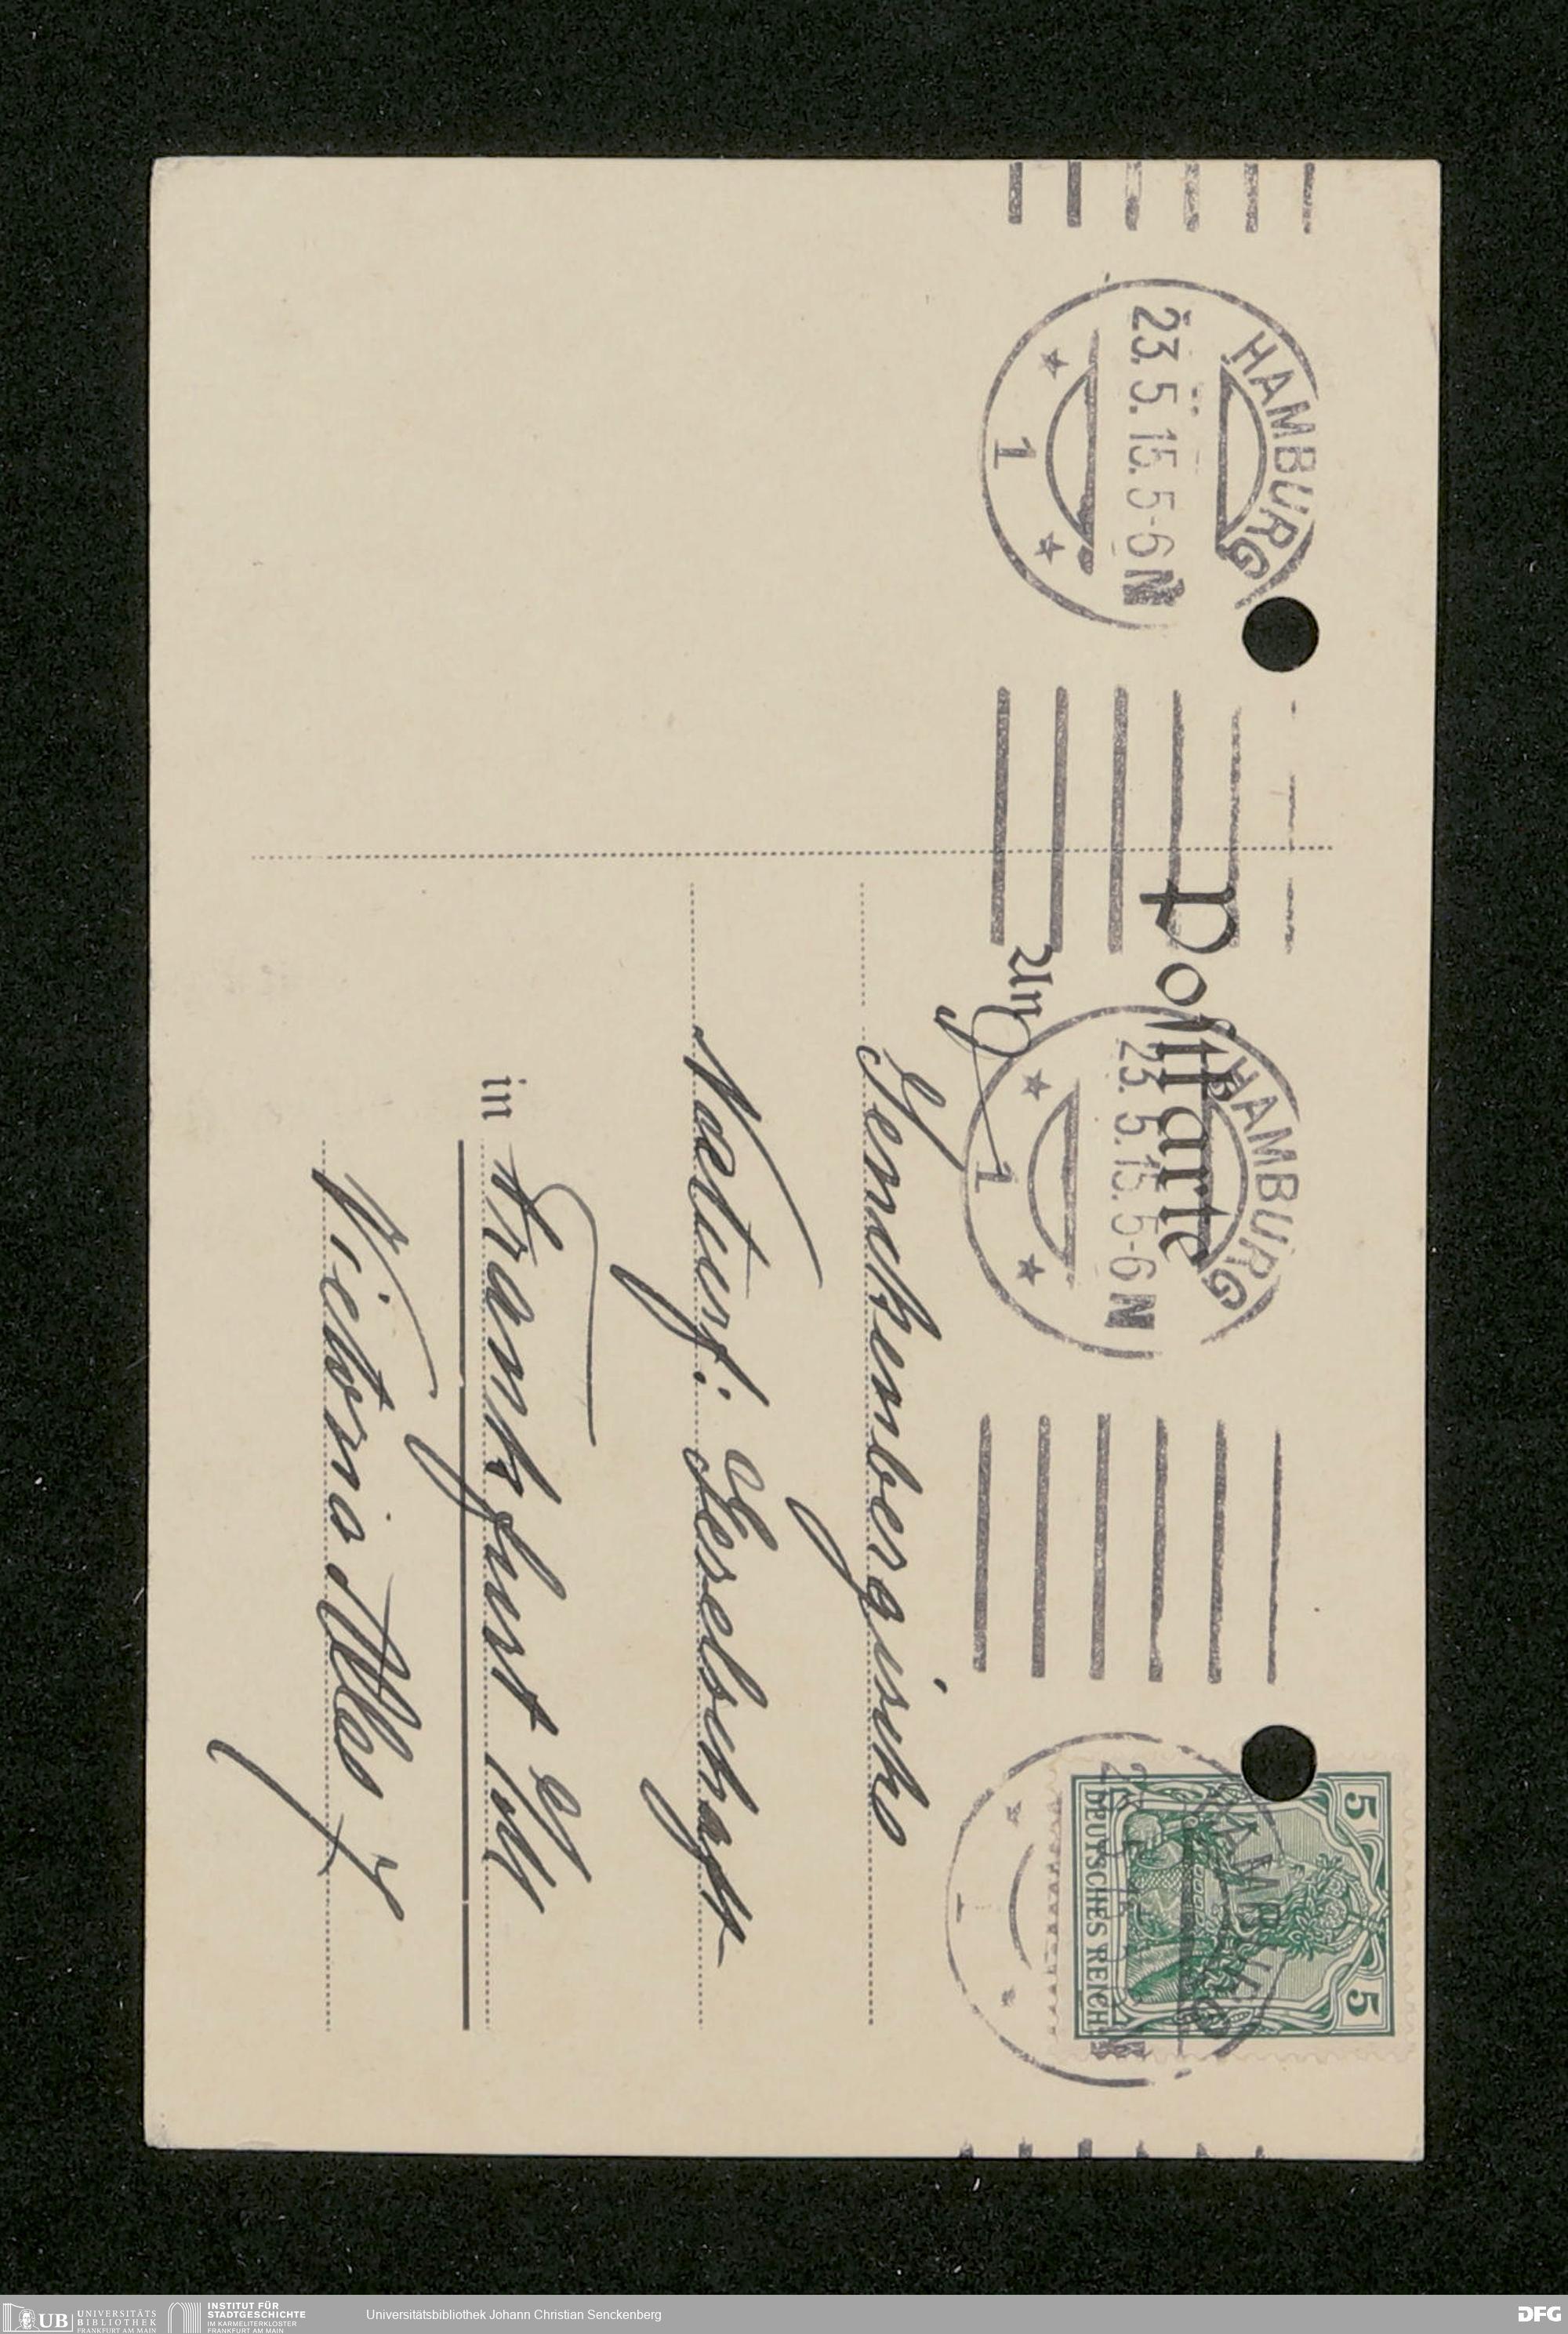 HAMBURG
23.5.15.5-6N
★ 1 ★
Postkarte
HAMBURG
23.5.15.5-6N
★ 1 ★
5 5
DEUTSCHES REICH
HAMBURG
An
Senckenbergische
Naturf: Gesellschaft
in Frankfurt a/M
Victoria Allee 7
UB UNIVERSITÄTS
BIBLIOTHEK
FRANKFURT AM MAIN
INSTITUT FÜR
STADTGESCHICHTE
IM KARMELITERKLOSTER
FRANKFURT AM MAIN
Universitätsbibliothek Johann Christian Senckenberg
DFG